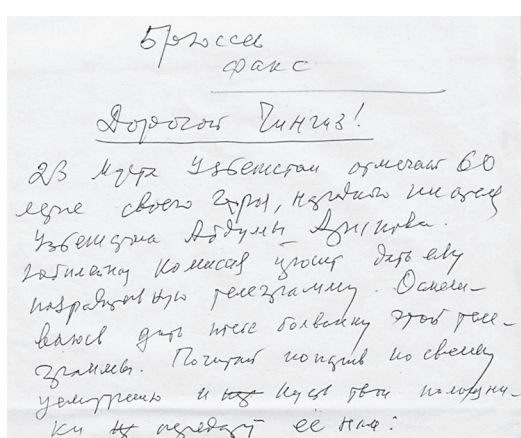 Брюссель
Факс
Дорогой Чингиз!
23 марта Узбекистан отмечает 60
летие своего Героя, народного писателя
Узбекистана Абдуллы Арипова.
Юбилейная комиссия просит дать ему
поздравительную телеграмму. Осмели-
ваюсь дать тебе болванку этой теле-
граммы. Почитай поправь по своему
усмотрению и пусть твои помощни-
ки передадут её нам: